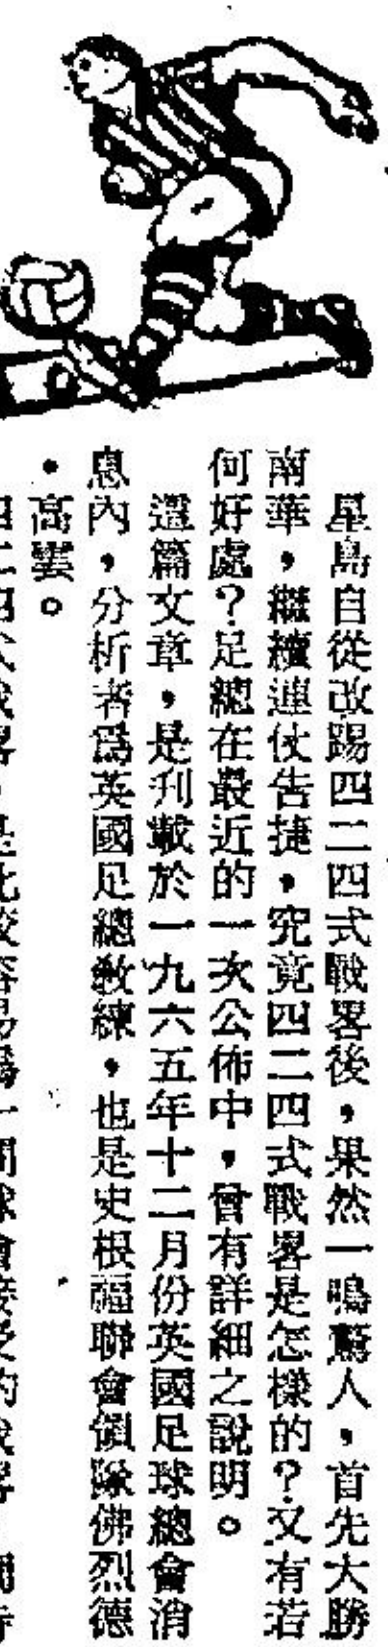 星島自從改踢四二四式戰畧後，果然一鳴驚人，首先大勝
南華，繼續連仗告捷，究竟四二四式戰畧是怎樣的？又有若
何好處？足總在最近的一次公佈中，曾有詳細之說明。
這篇文章，是刋載於一九六五年十二月份英國足球總會消
息內，分析者爲英國足總敎練，也是史根福聯會領隊佛烈德
・高雲。